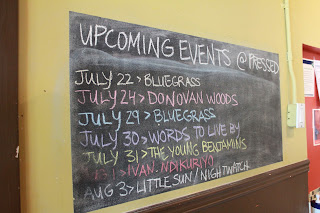 UPCOMING EVENTS @ PRESSED
JULY 22 > BLUEGRASS
JULY 24 > DONOVAN WOODS
JULY 29 > BLUEGRASS
JULY 30 > WORDS TO LIVE BY
JULY 31 > THE YOUNG BENJAMINS
31 > IVAN. NDIKURIYO
AUG 3 > LITTLE SUN / NIGHTWATCH